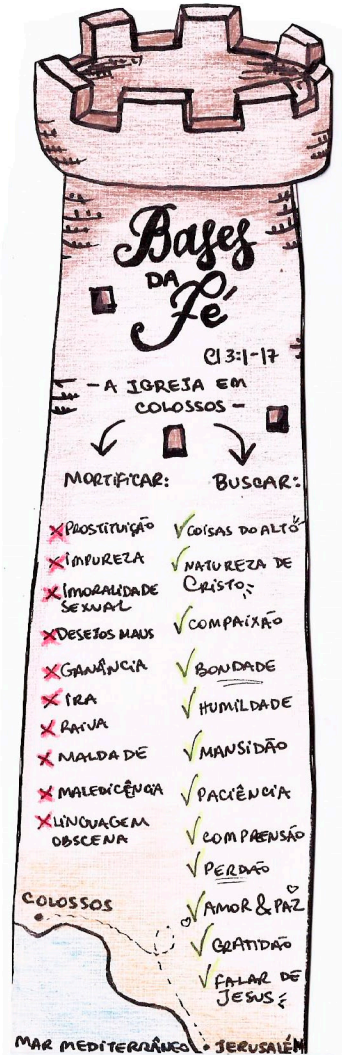 Bases
DA
Fé
Cl 3:1-17
- A IGREJA EM
COLOSSOS -
MORTIFICAR:
PROSTITUIÇÃO
IMPUREZA
IMORALIDADE
SEXUAL
DESEJOS MAUS
GANÂNCIA
IRA
RAIVA
MALDADE
MALEDICÊNCIA
LINGUAGEM
OBSCENA
BUSCAR:
COISAS DO ALTO
NATUREZA DE
CRISTO
COMPAIXÃO
BONDADE
HUMILDADE
MANSIDÃO
PACIÊNCIA
COMPRENSÃO
PERDÃO
AMOR & PAZ
GRATIDÃO
FALAR DE
JESUS
COLOSSOS
MAR MEDITERRÂNEO
JERUSALÉM